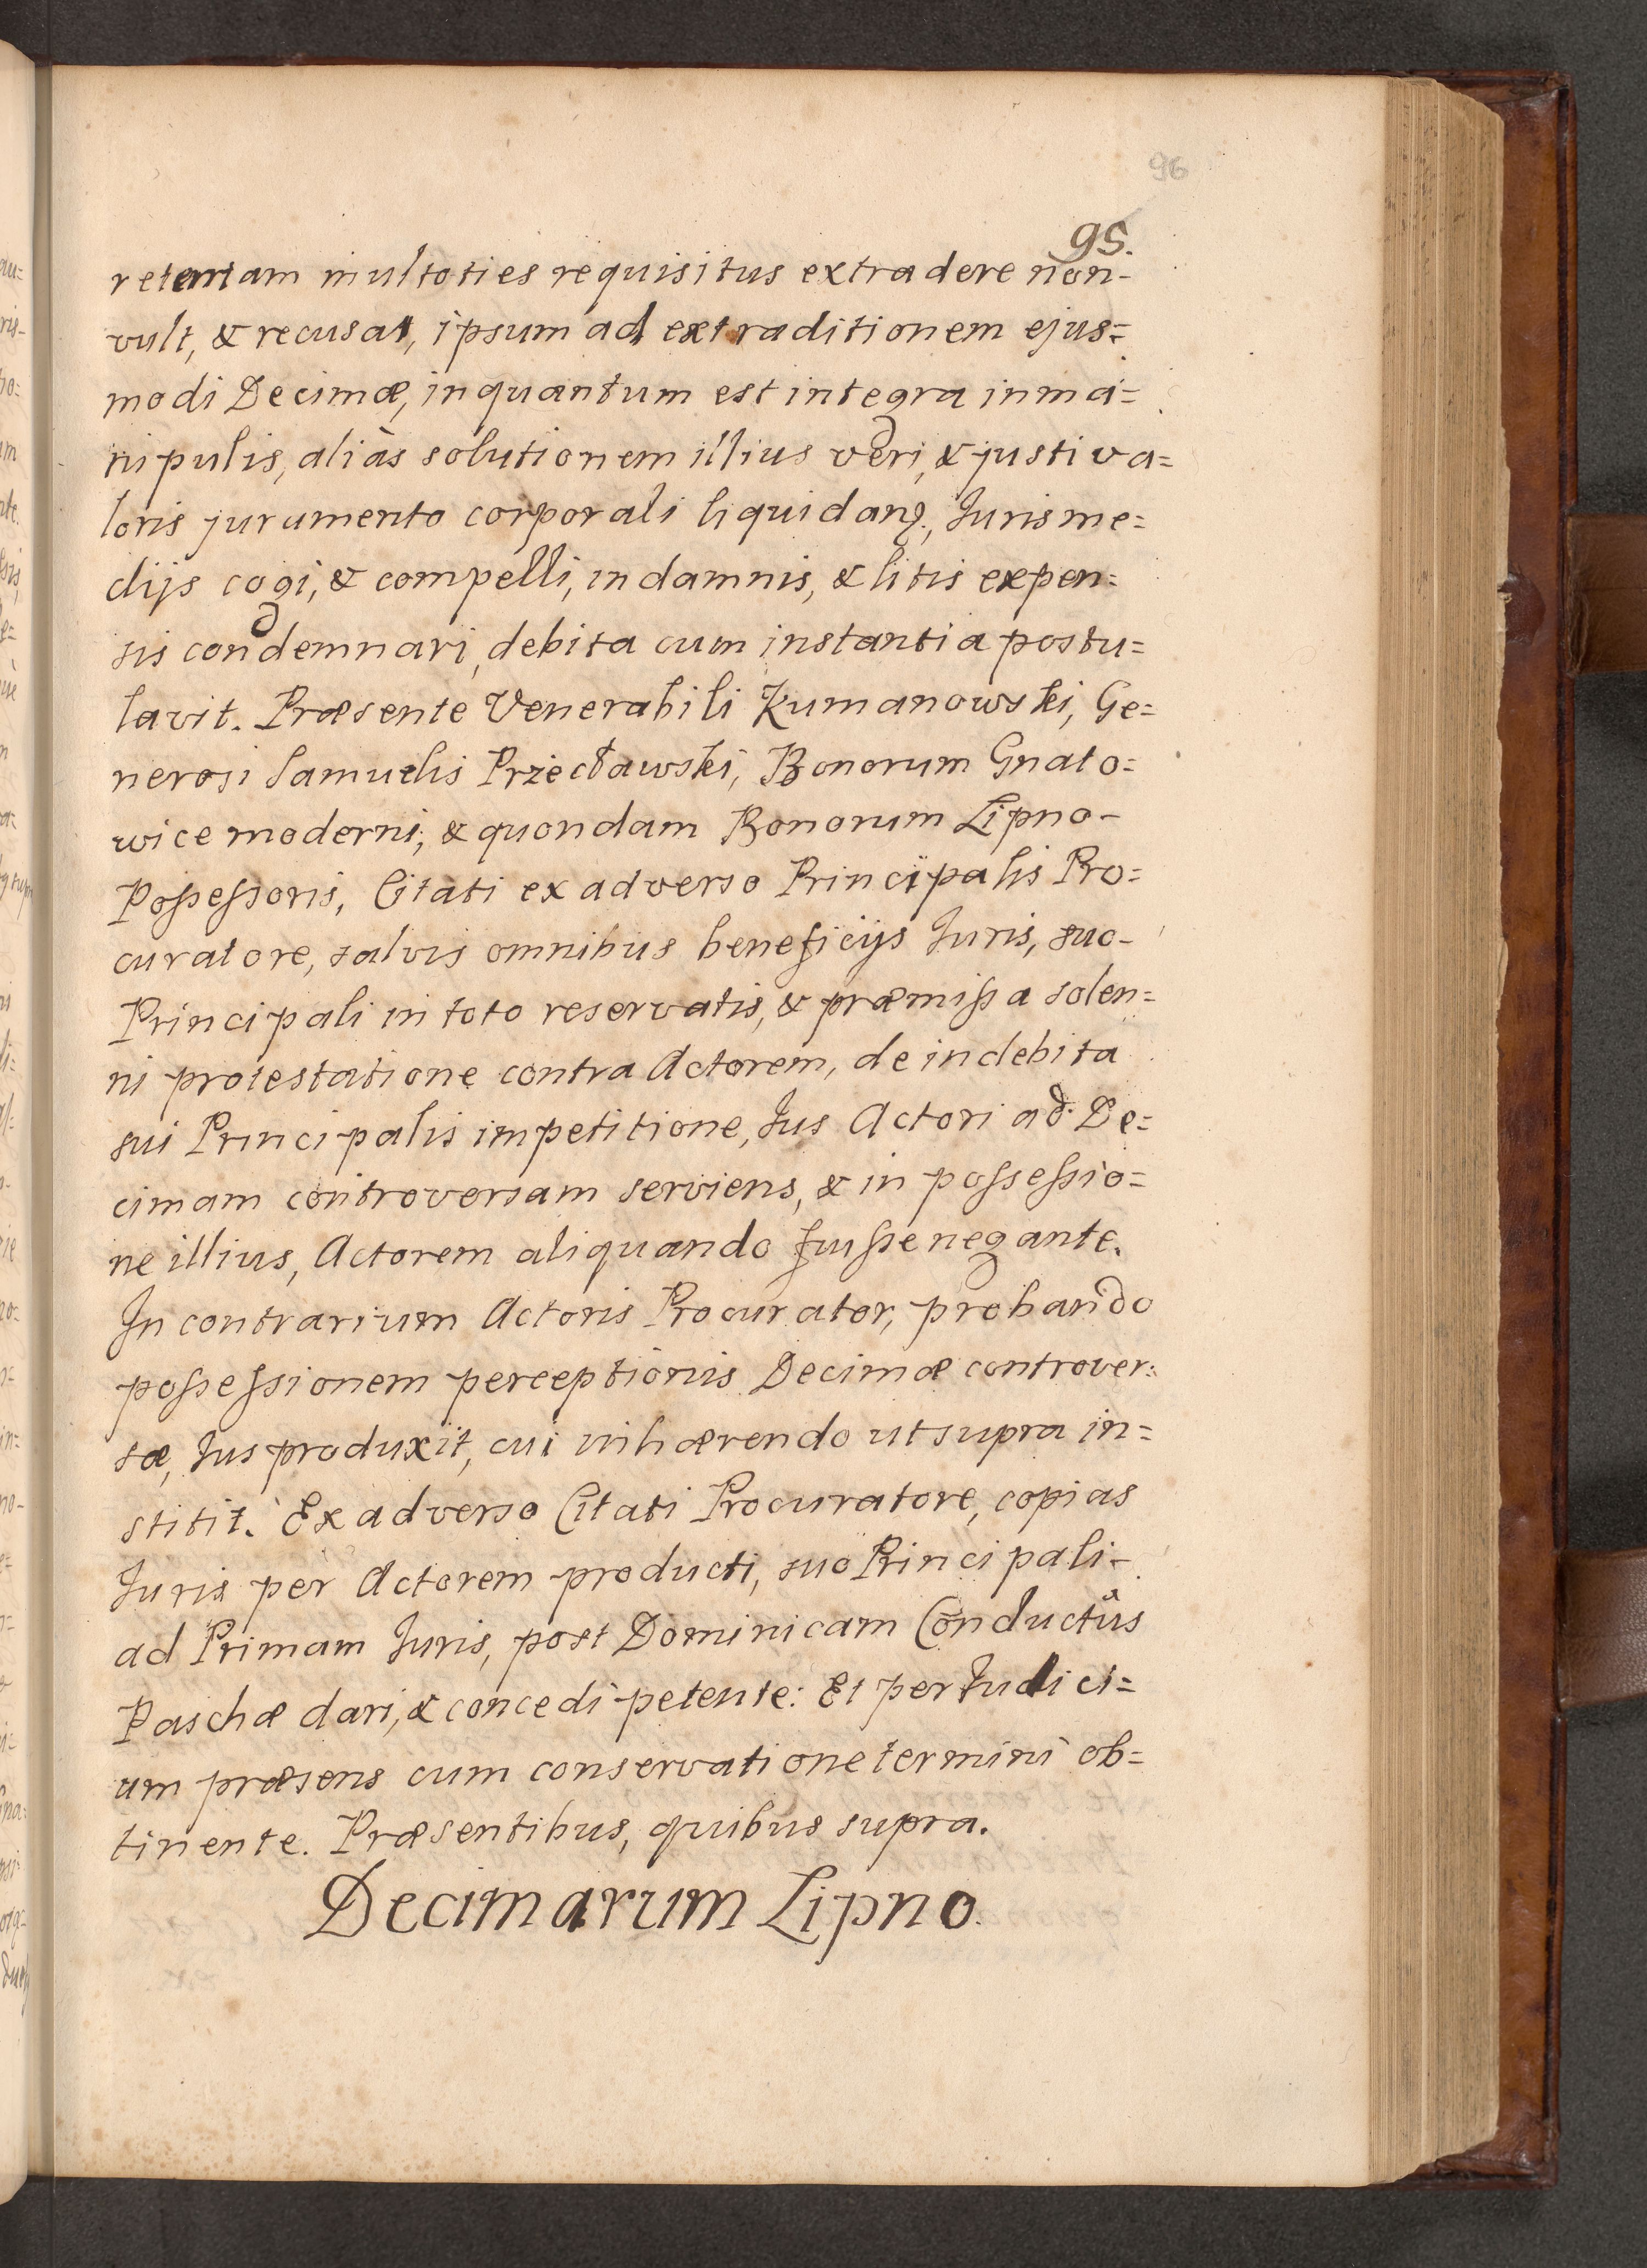 96
95.
retentam multoties requisitus extradere non-
vult, & recusat, ipsum ad extraditionem ejus=
modi Decimæ, inquantum est integra in ma=
nipulis, aliàs solutionem illius veri, & justi va=
loris juramento corporali liquidanð., Juris me=
dijs cogi, & compelli, in damnis, & litis expen=
sis condemnari, debita cum instantia postu=
lavit. Præsente Venerabili Kumanowski, Ge=
nerosi Samuelis Przecławski, Bonorum Gnato=
wice moderni, & quondam Bonorum Lipno-
Poſseſsoris, Citati ex adverso Principalis Pro=
curatore, salvis omnibus beneficijs Juris, suo-
Principali in toto reservatis, & præmiſsa solen=
ni protestatione contra Actorem, de indebita
sui Principalis impetitione, Jus Actori ad De=
cimam controversam serviens, & in poſseſsio=
ne illius, Actorem aliquando fuiſse negante.
In contrarium Actoris Procurator, probando
poſseſsionem perceptionis Decimæ controver=
sæ, Jus produxit, cui inhærendo ut supra in=
stitit. Ex adverso Citati Procuratore, copias
Juris per Actorem producti, suo Principali-
ad Primam Juris, post Dominicam Conductûs
Paschæ dari, & concedi petente: Et per Judici=
um præsens cum conservatione termini ob=
tinente. Præsentibus, quibus supra.
Decimarum Lipno.